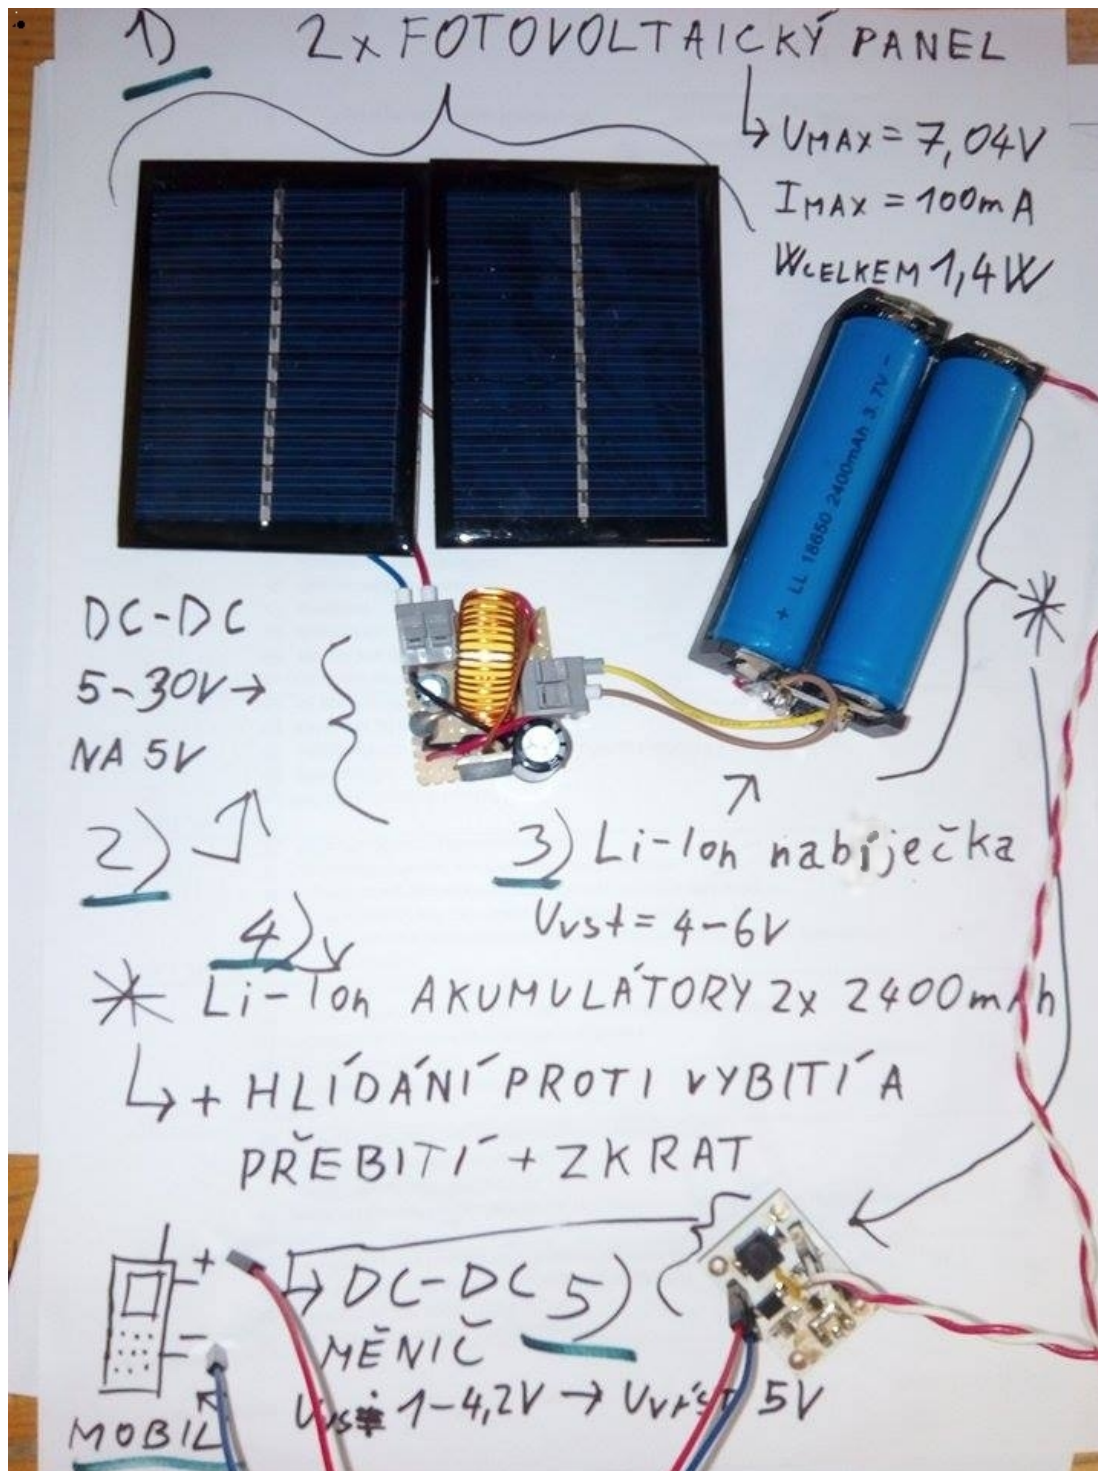 1) 2x FOTOVOLTAICKÝ PANEL
UMAX = 7,04V
IMAX = 100mA
WCELKEM 1,4W
+ LL 18650 2400mAh 3.7V -
DC-DC
5-30V →
NA 5V
2)
3) Li-Ion nabíječka
Uvst = 4-6V
4)
* Li-Ion AKUMULÁTORY 2x 2400mAh
+ HLÍDÁNÍ PROTI VYBITÍ A
PŘEBITÍ + ZKRAT
+
-
MOBIL
DC-DC 5)
MĚNIČ
1-4,2V → Uvýst 5V